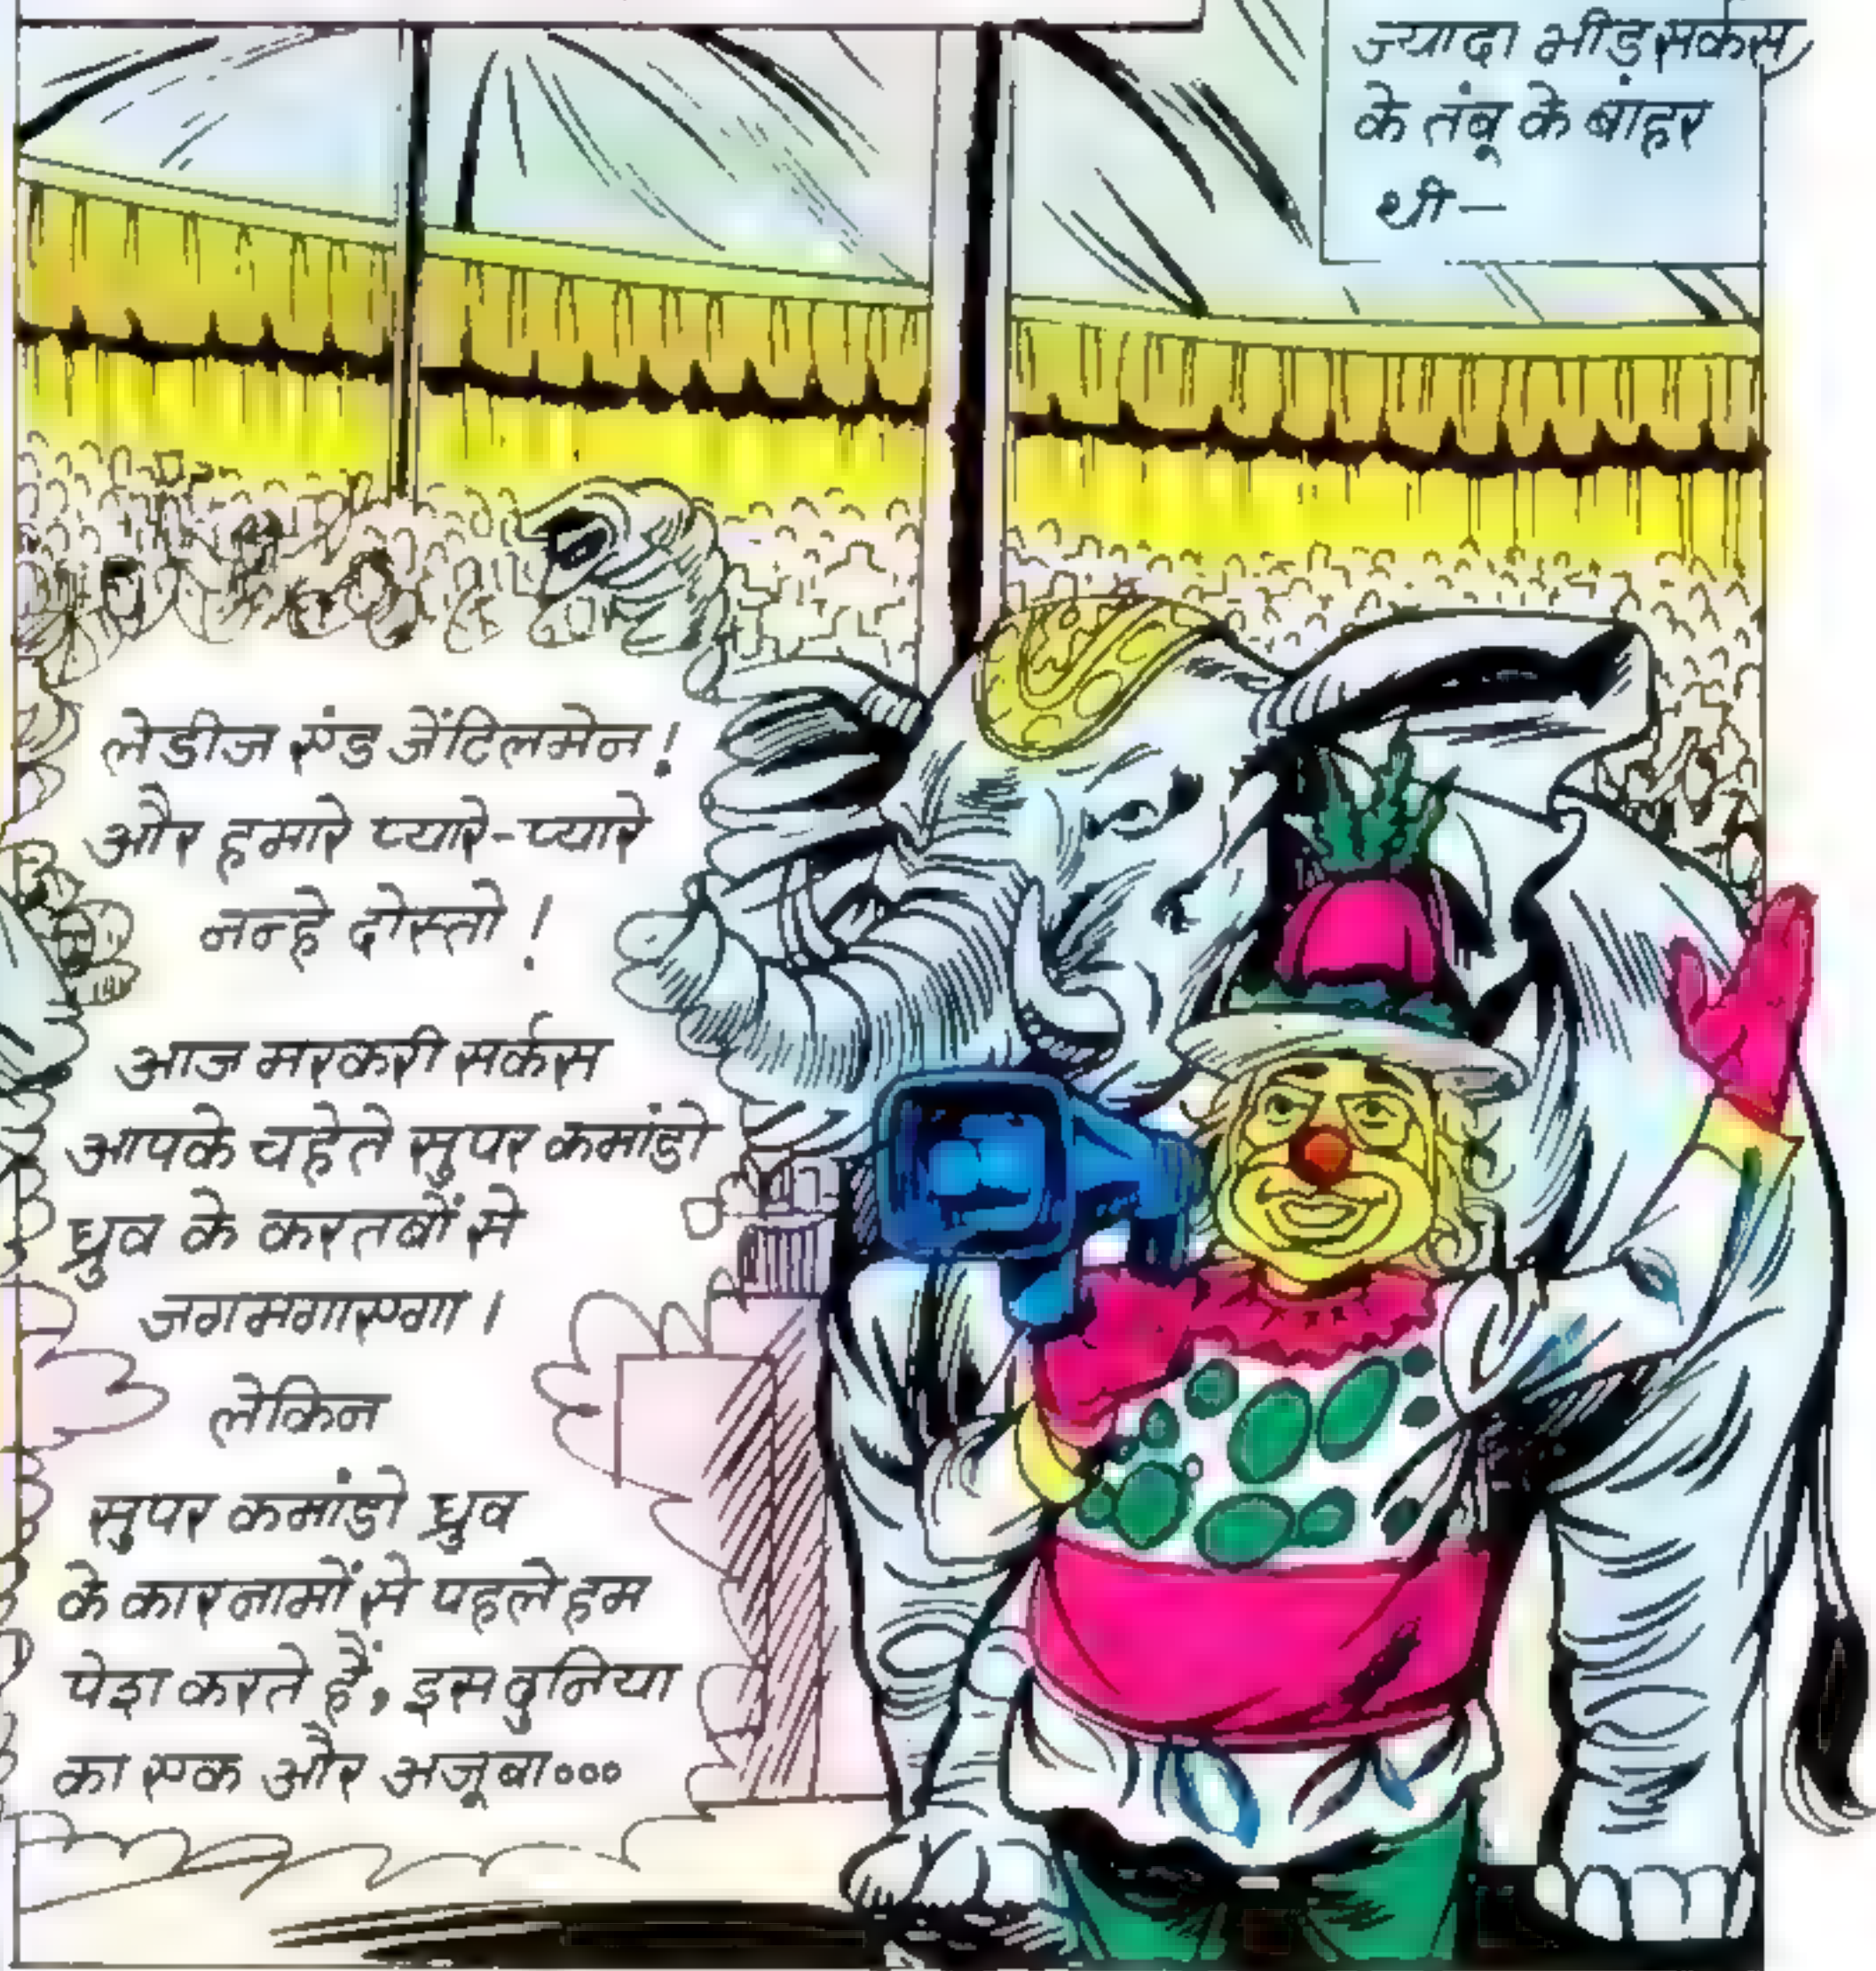 ज्यादा भीड़ सर्कस
के तंबू के बाहर
थी—
लेडीज एंड जेंटिलमेन!
और हमारे प्यारे-प्यारे
नन्हे दोस्तो!
आज मरकरी सर्कस
आपके चहेते सुपर कमांडो
ध्रुव के करतबों से
जगमगाएगा।
लेकिन
सुपर कमांडो ध्रुव
के कारनामों से पहले हम
पेश करते हैं, इस दुनिया
का एक और अजूबा...